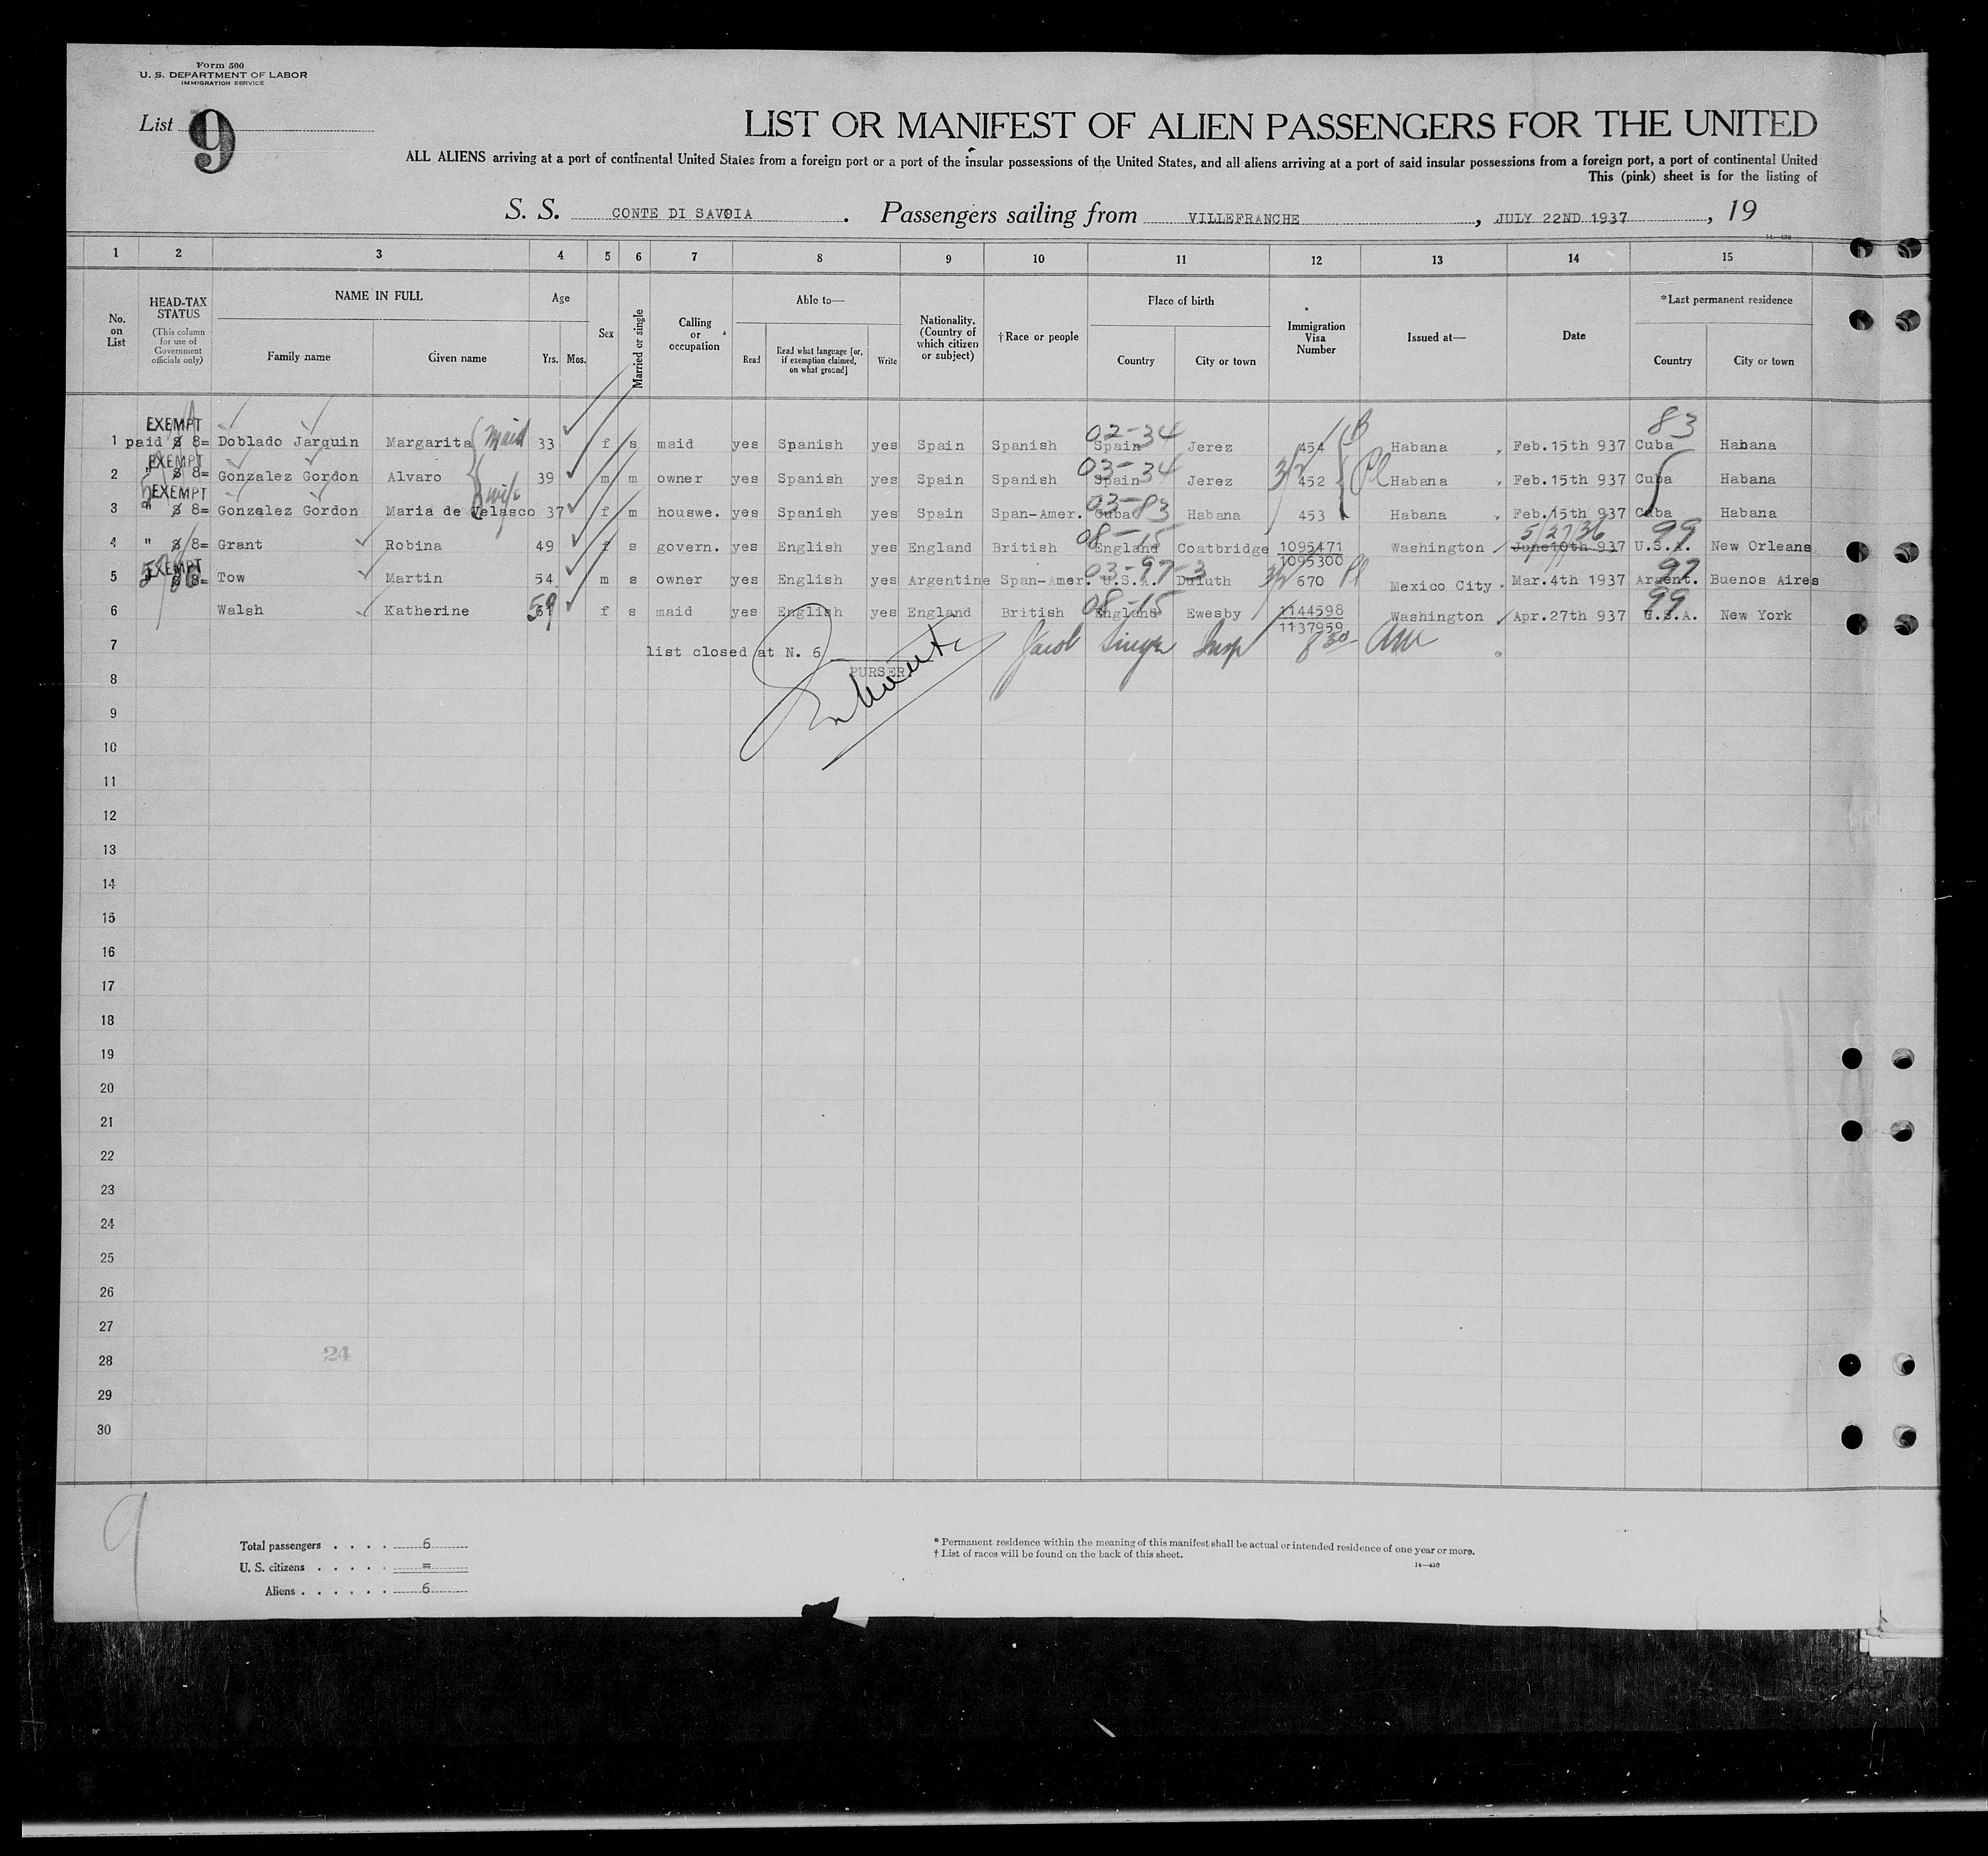 Form 500
U. S. DEPARTMENT OF LABOR
IMMIGRATION SERVICE
List 9
LIST OR MANIFEST OF ALIEN PASSENGERS FOR THE UNITED
ALL ALIENS arriving at a port of continental United States from a foreign port or a port of the insular possessions of the United States, and all aliens arriving at a port of said insular possessions from a foreign port, a port of continental United
This (pink) sheet is for the listing of
S. S. CONTE DI SAVOIA . Passengers sailing from VILLEFRANCHE , JULY 22ND 1937 , 19
14—430
1 2 3 4 5 6 7 8 9 10 11 12 13 14 15
No. on List
HEAD-TAX STATUS (This column for use of Government officials only)
NAME IN FULL
Family name Given name
Age
Yrs. Mos.
Sex
Married or single
Calling or occupation
Able to—
Read Read what language [or, if exemption claimed, on what ground] Write
Nationality. (Country of which citizen or subject)
†Race or people
Place of birth
Country City or town
Immigration Visa Number
Issued at—
Date
*Last permanent residence
Country City or town
EXEMPT 02-34 83
1 paid $ 8= Doblado Jarquin Margarita maid 33 f s maid yes Spanish yes Spain Spanish Spain Jerez 454 Habana Feb.15th 937 Cuba Habana
EXEMPT 03-34
2 " $ 8= Gonzalez Gordon Alvaro 39 m m owner yes Spanish yes Spain Spanish Spain Jerez 452 Habana Feb.15th 937 Cuba Habana
EXEMPT wife 03-83
3 " $ 8= Gonzalez Gordon Maria de Velasco 37 f m houswe. yes Spanish yes Spain Span-Amer. Cuba Habana 453 Habana Feb.15th 937 Cuba Habana
08-15 5/27/36 99
4 " $ 8= Grant Robina 49 f s govern. yes English yes England British England Coatbridge 1095471 Washington June10th 937 U.S.A. New Orleans
EXEMPT 03-97-3 1095300 97
5 $ 8= Tow Martin 54 m s owner yes English yes Argentine Span-Amer. U.S.A. Duluth 670 Mexico City Mar.4th 1937 Argent. Buenos Aires
59 08-15 99
6 Walsh Katherine 61 f s maid yes English yes England British England Ewesby 1144598 Washington Apr.27th 937 U.S.A. New York
1137959
7 list closed at N. 6 Jacob Singer Insp 8 30 am
8 PURSER
9
10
11
12
13
14
15
16
17
18
19
20
21
22
23
24
25
26
27
28 24
29
30
9
Total passengers . . . . 6
U. S. citizens . . . . . =
Aliens . . . . . . 6
* Permanent residence within the meaning of this manifest shall be actual or intended residence of one year or more.
† List of races will be found on the back of this sheet.
14—430